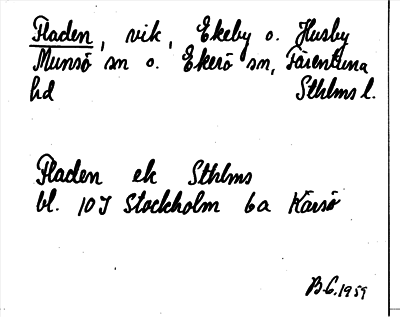 Fladen, vik, Ekeby o. Husby
Munsö sn o. Ekerö sn, Färentuna
hd Sthlms l.
Fladen ek Sthlms
bl. 10 I Stockholm 6a Kärsö
B.G. 1959